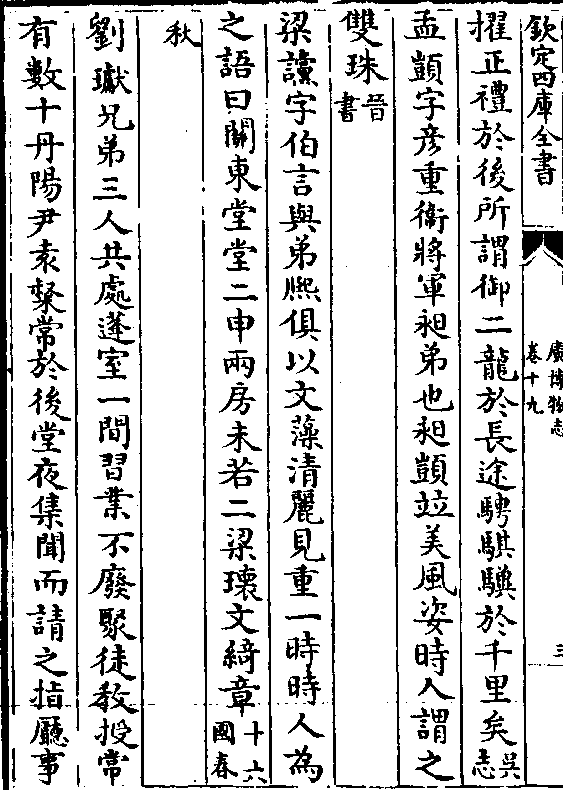 欽定四庫全書
廣博物志
卷十九
三
擢正禮於後所謂御二龍於長途騁騏驥於千里矣吳志
孟顗字彦重衞將軍昶弟也昶顗竝美風姿時人謂之
雙珠晉書
梁讜字伯言與弟熈俱以文藻清麗見重一時時人為
之語曰關東堂堂二申兩房未若二梁瓌文綺章十六國春
秋
劉瓛兄弟三人共處蓬室一間習業不廢聚徒教授常
有數十丹陽尹袁粲常於後堂夜集聞而請之指廳事